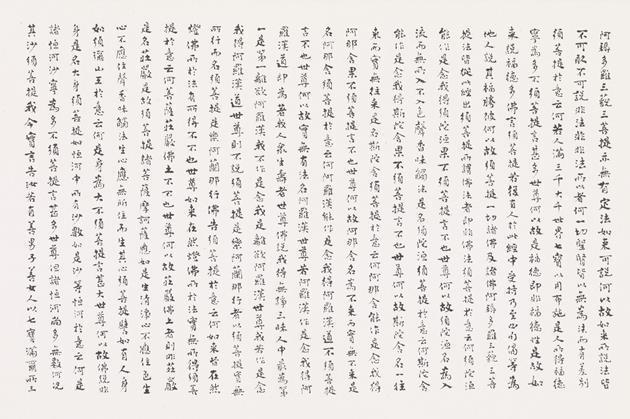 阿耨多羅三藐三菩提亦無有定法如來可說何以故如來所說法皆
不可取不可說非法非非法所以者何一切聖賢皆以無為法而有差別
須菩提於意云何若人滿三千大千世界七寶以用布施是人所得福德
寧為多不須菩提言甚多世尊何以故是福德即非福德性是故如
來說福德多佛言須菩提若復有人於此經中受持乃至四句偈等為
他人說其福勝彼何以故須菩提一切諸佛及諸佛阿耨多羅三藐三菩
提法皆從此經出須菩提所謂佛法者即非佛法須菩提於意云何須陀洹
能作是念我得須陀洹果不須菩提言不也世尊何以故須陀洹名為入
流而無所入不入色聲香味觸法是名須陀洹須菩提於意云何斯陀含
能作是念我得斯陀含果不須菩提言不也世尊何以故斯陀含名一往
來而實無往來是名斯陀含須菩提於意云何阿那含能作是念我得
阿那含果不須菩提言不也世尊何以故阿那含名為不來而實無不來是
名阿那含須菩提於意云何阿羅漢能作是念我得阿羅漢道不須菩提
言不也世尊何以故實無有法名阿羅漢世尊若阿羅漢作是念我得阿
羅漢道即為著我人眾生壽者世尊佛說我得無諍三昧人中最為第
一是第一離欲阿羅漢我不作是念我是離欲阿羅漢世尊我若作是念
我得阿羅漢道世尊則不說須菩提是樂阿蘭那行者以須菩提實無
所行而名須菩提是樂阿蘭那行佛告須菩提於意云何如來昔在然
燈佛所於法有所得不不也世尊如來在然燈佛所於法實無所得須菩
提於意云何菩薩莊嚴佛土不不也世尊何以故莊嚴佛土者則非莊嚴
是名莊嚴是故須菩提諸菩薩摩訶薩應如是生清淨心不應住色生
心不應住聲香味觸法生心應無所住而生其心須菩提譬如有人身
如須彌山王於意云何是身為大不須菩提言甚大世尊何以故佛說非
身是名大身須菩提如恒河中所有沙數如是沙等恒河於意云何是
諸恒河沙寧為多不須菩提言甚多世尊但諸恒河尚多無數何況
其沙須菩提我今實言告汝若有善男子善女人以七寶滿爾所三